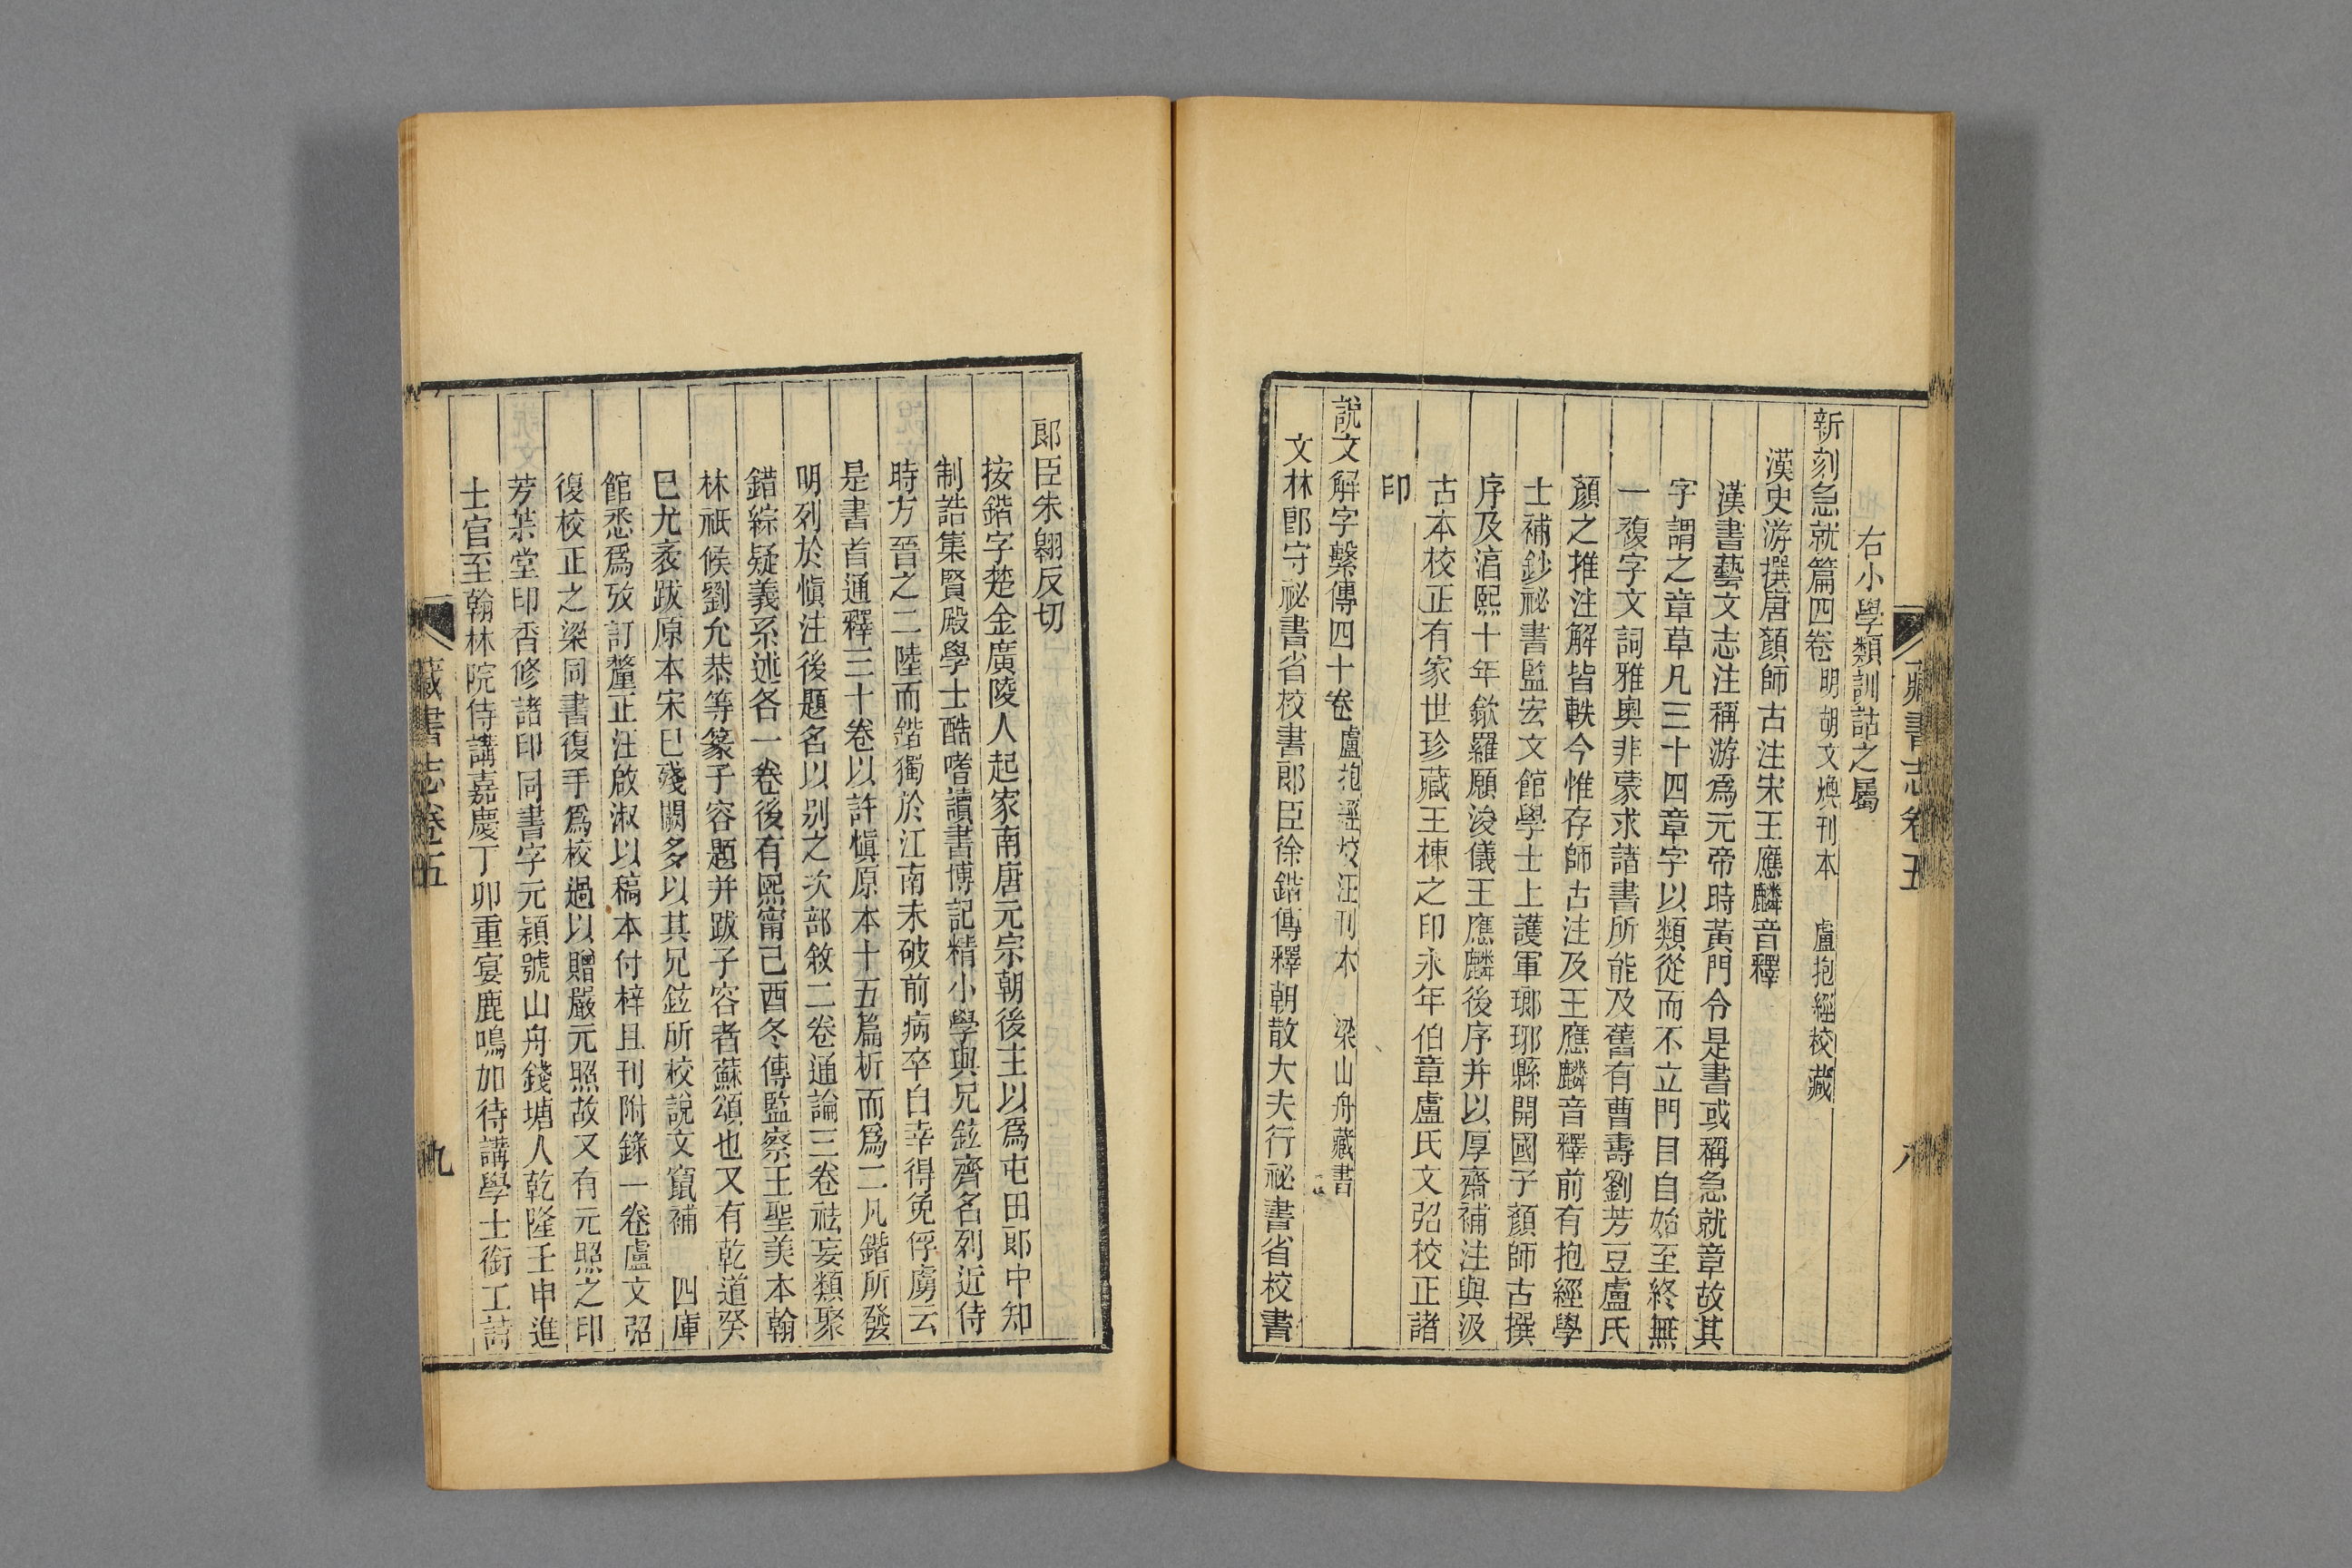 藏書志卷五
八
右小學類訓詁之屬
新刻急就篇四卷 明胡文煥刊本 盧抱經校藏
漢史游撰唐顏師古注宋王應麟音釋
漢書藝文志注稱游爲元帝時黃門令是書或稱急就章故其
字謂之章草凡三十四章字以類從而不立門目自始至終無
一複字文詞雅奧非蒙求諸書所能及舊有曹壽劉芳豆盧氏
顏之推注解皆軼今惟存師古注及王應麟音釋前有抱經學
士補鈔祕書監宏文館學士上護軍瑯琊縣開國子顏師古撰
序及湻熙十年歙羅願浚儀王應麟後序并以厚齋補注與汲
古本校正有家世珍藏王棟之印永年伯章盧氏文弨校正諸
印
說文解字繫傳四十卷 盧抱經校汪刊本 梁山舟藏書
文林郎守祕書省校書郎臣徐鍇傳釋朝散大夫行祕書省校書
郎臣朱翱反切
按鍇字楚金廣陵人起家南唐元宗朝後主以爲屯田郎中知
制誥集賢殿學士酷嗜讀書博記精小學與兄鉉齊名列近侍
時方晉之二陸而鍇獨於江南未破前病卒自幸得免俘虜云
是書首通釋三十卷以許愼原本十五篇析而爲二凡鍇所發
明列於愼注後題名以別之次部敘二卷通論三卷祛妄類聚
錯綜疑義系述各一卷後有熙甯己酉冬傳監察王聖美本翰
林祇候劉允恭等篆子容題并跋子容者蘇頌也又有乾道癸
巳尤袤跋原本宋已殘闕多以其兄鉉所校說文竄補 四庫
館悉爲攷訂釐正汪啟淑以稿本付梓且刊附錄一卷盧文弨
復校正之梁同書復手爲校過以贈嚴元照故又有元照之印
芳茮堂印香修諸印同書字元穎號山舟錢塘人乾隆壬申進
士官至翰林院侍講嘉慶丁卯重宴鹿鳴加侍講學士銜工詩
藏書志卷五
九